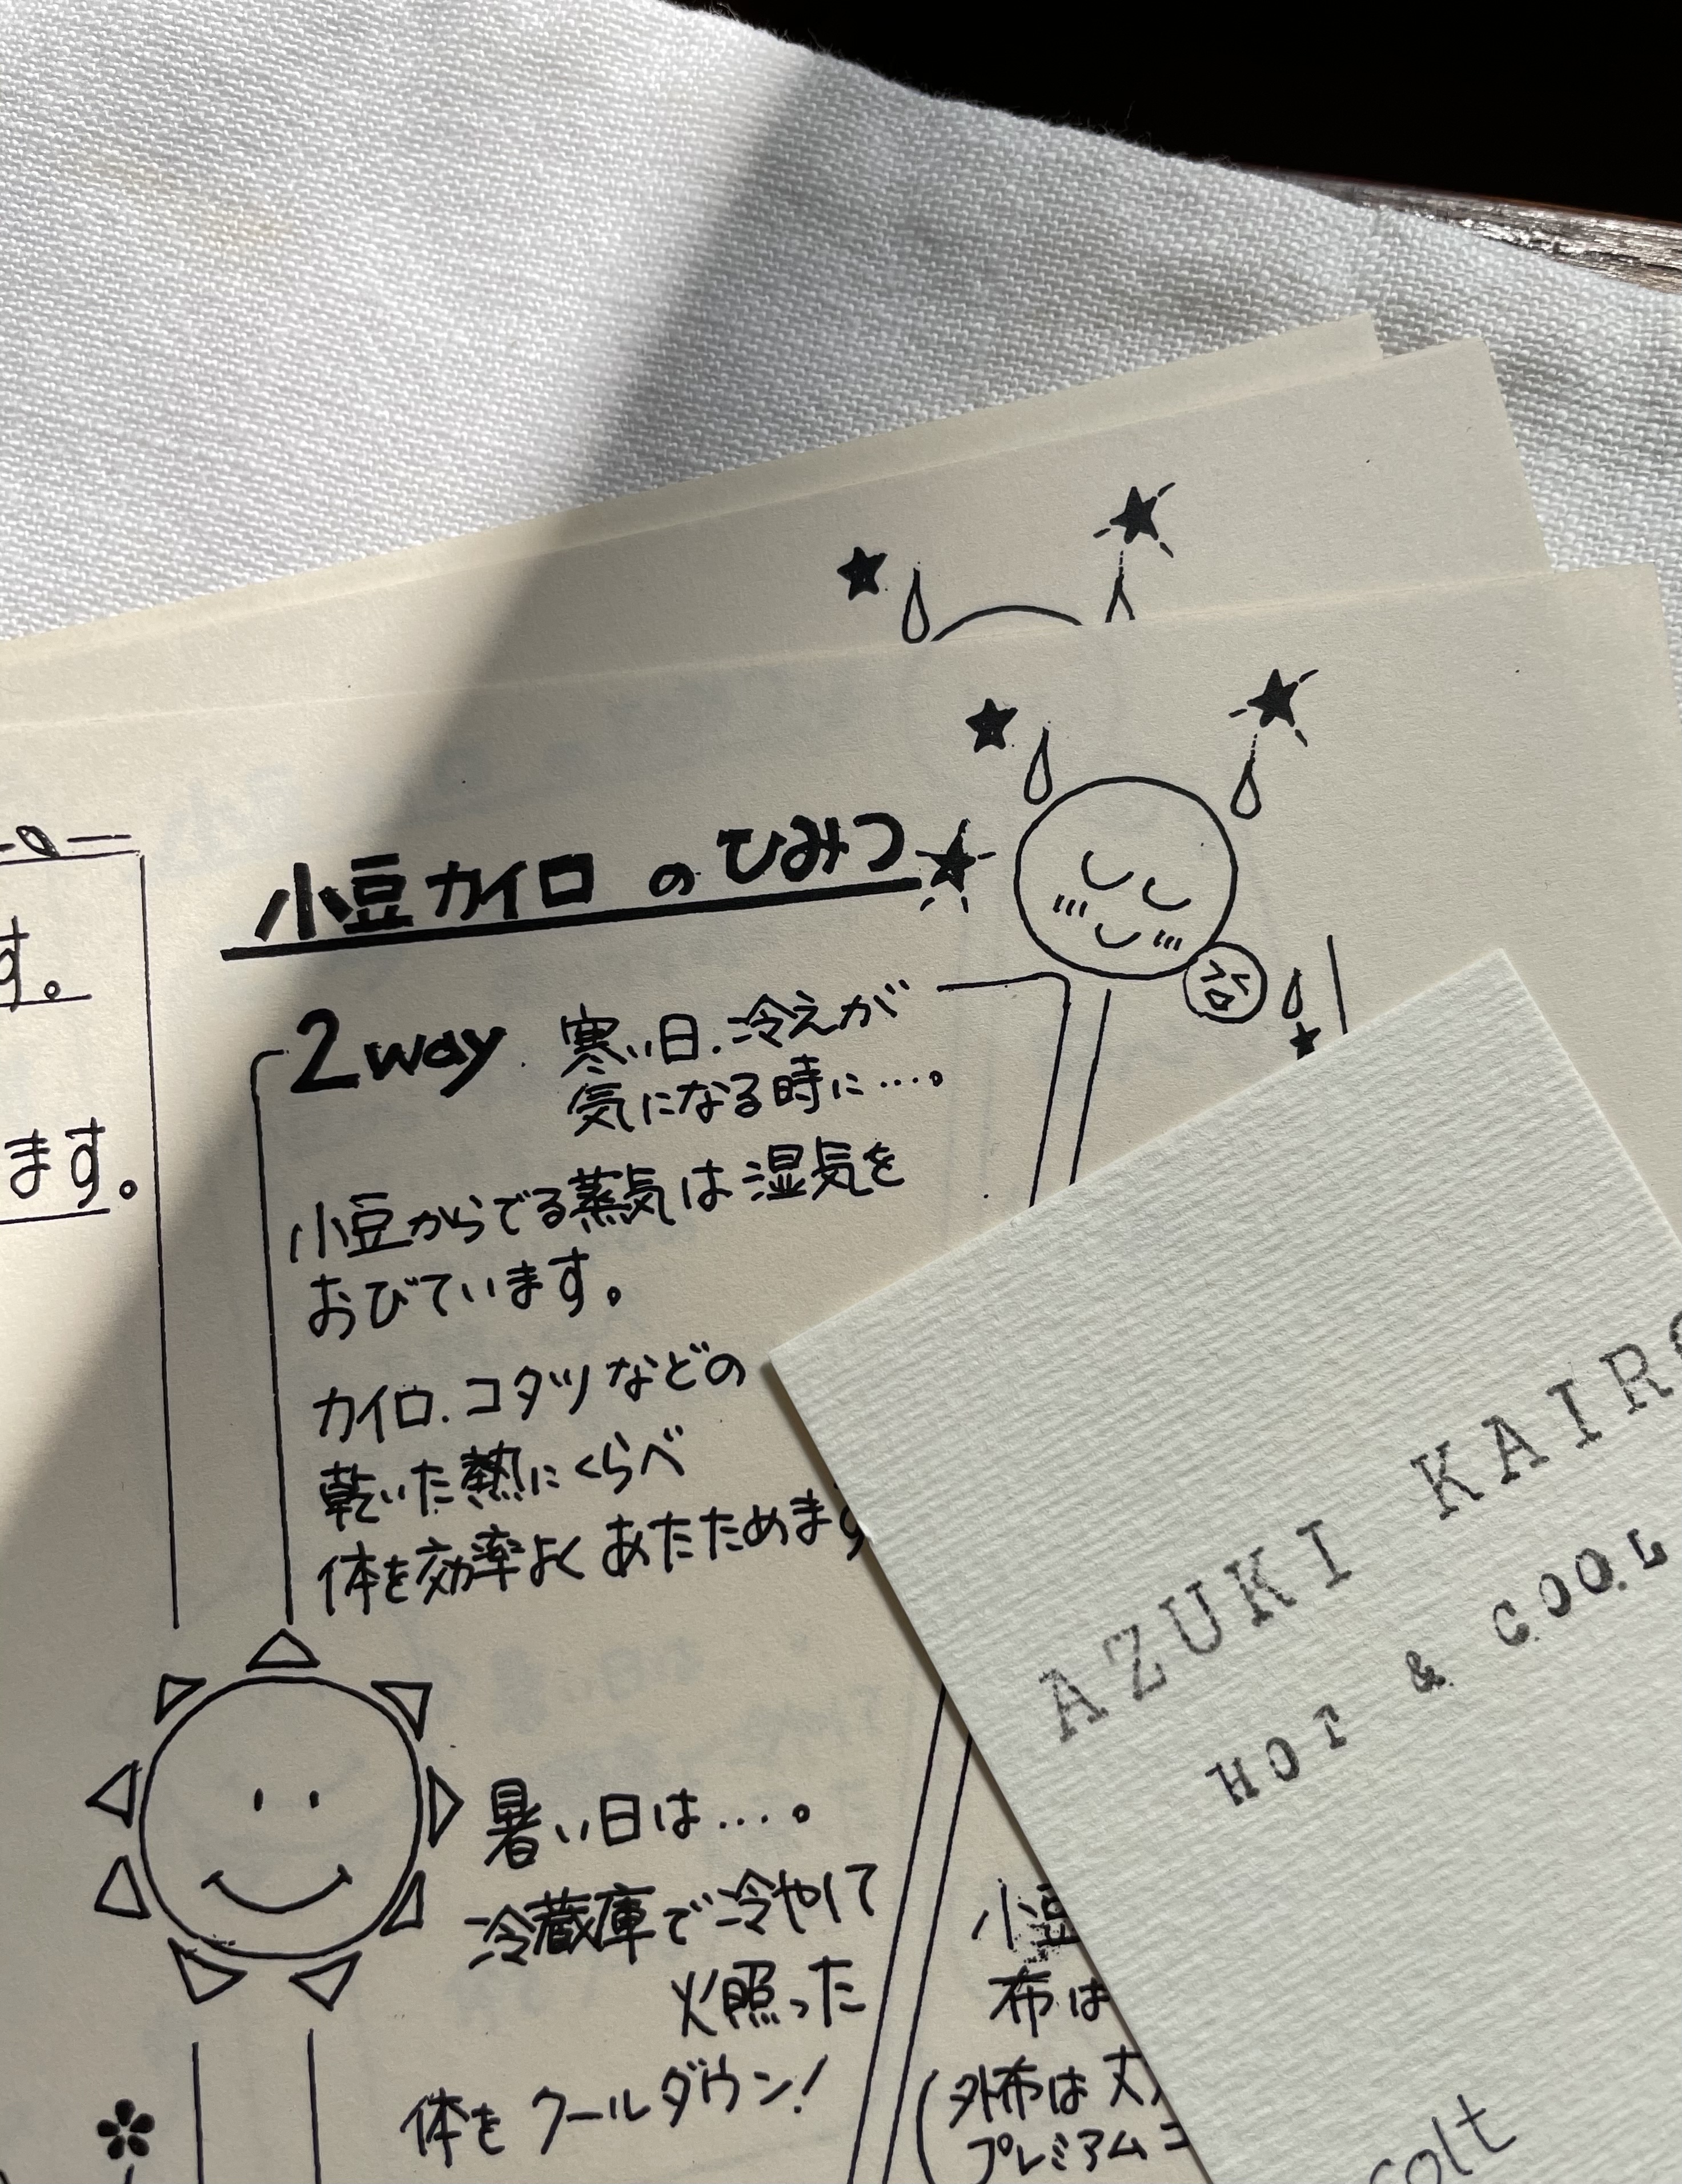 す。
ます。
小豆カイロのひみつ
2way
寒い日.冷えが
気になる時に…。
小豆からでる蒸気は湿気を
おびています。
カイロ.コタツなどの
乾いた熱にくらべ
体を効率よくあたためます
暑い日は…。
冷蔵庫で冷やして
火照った
体をクールダウン!
小豆
布は
(外布は丈
プレミアムコ
AZUKI KAIRO
HOT & COOL
colt